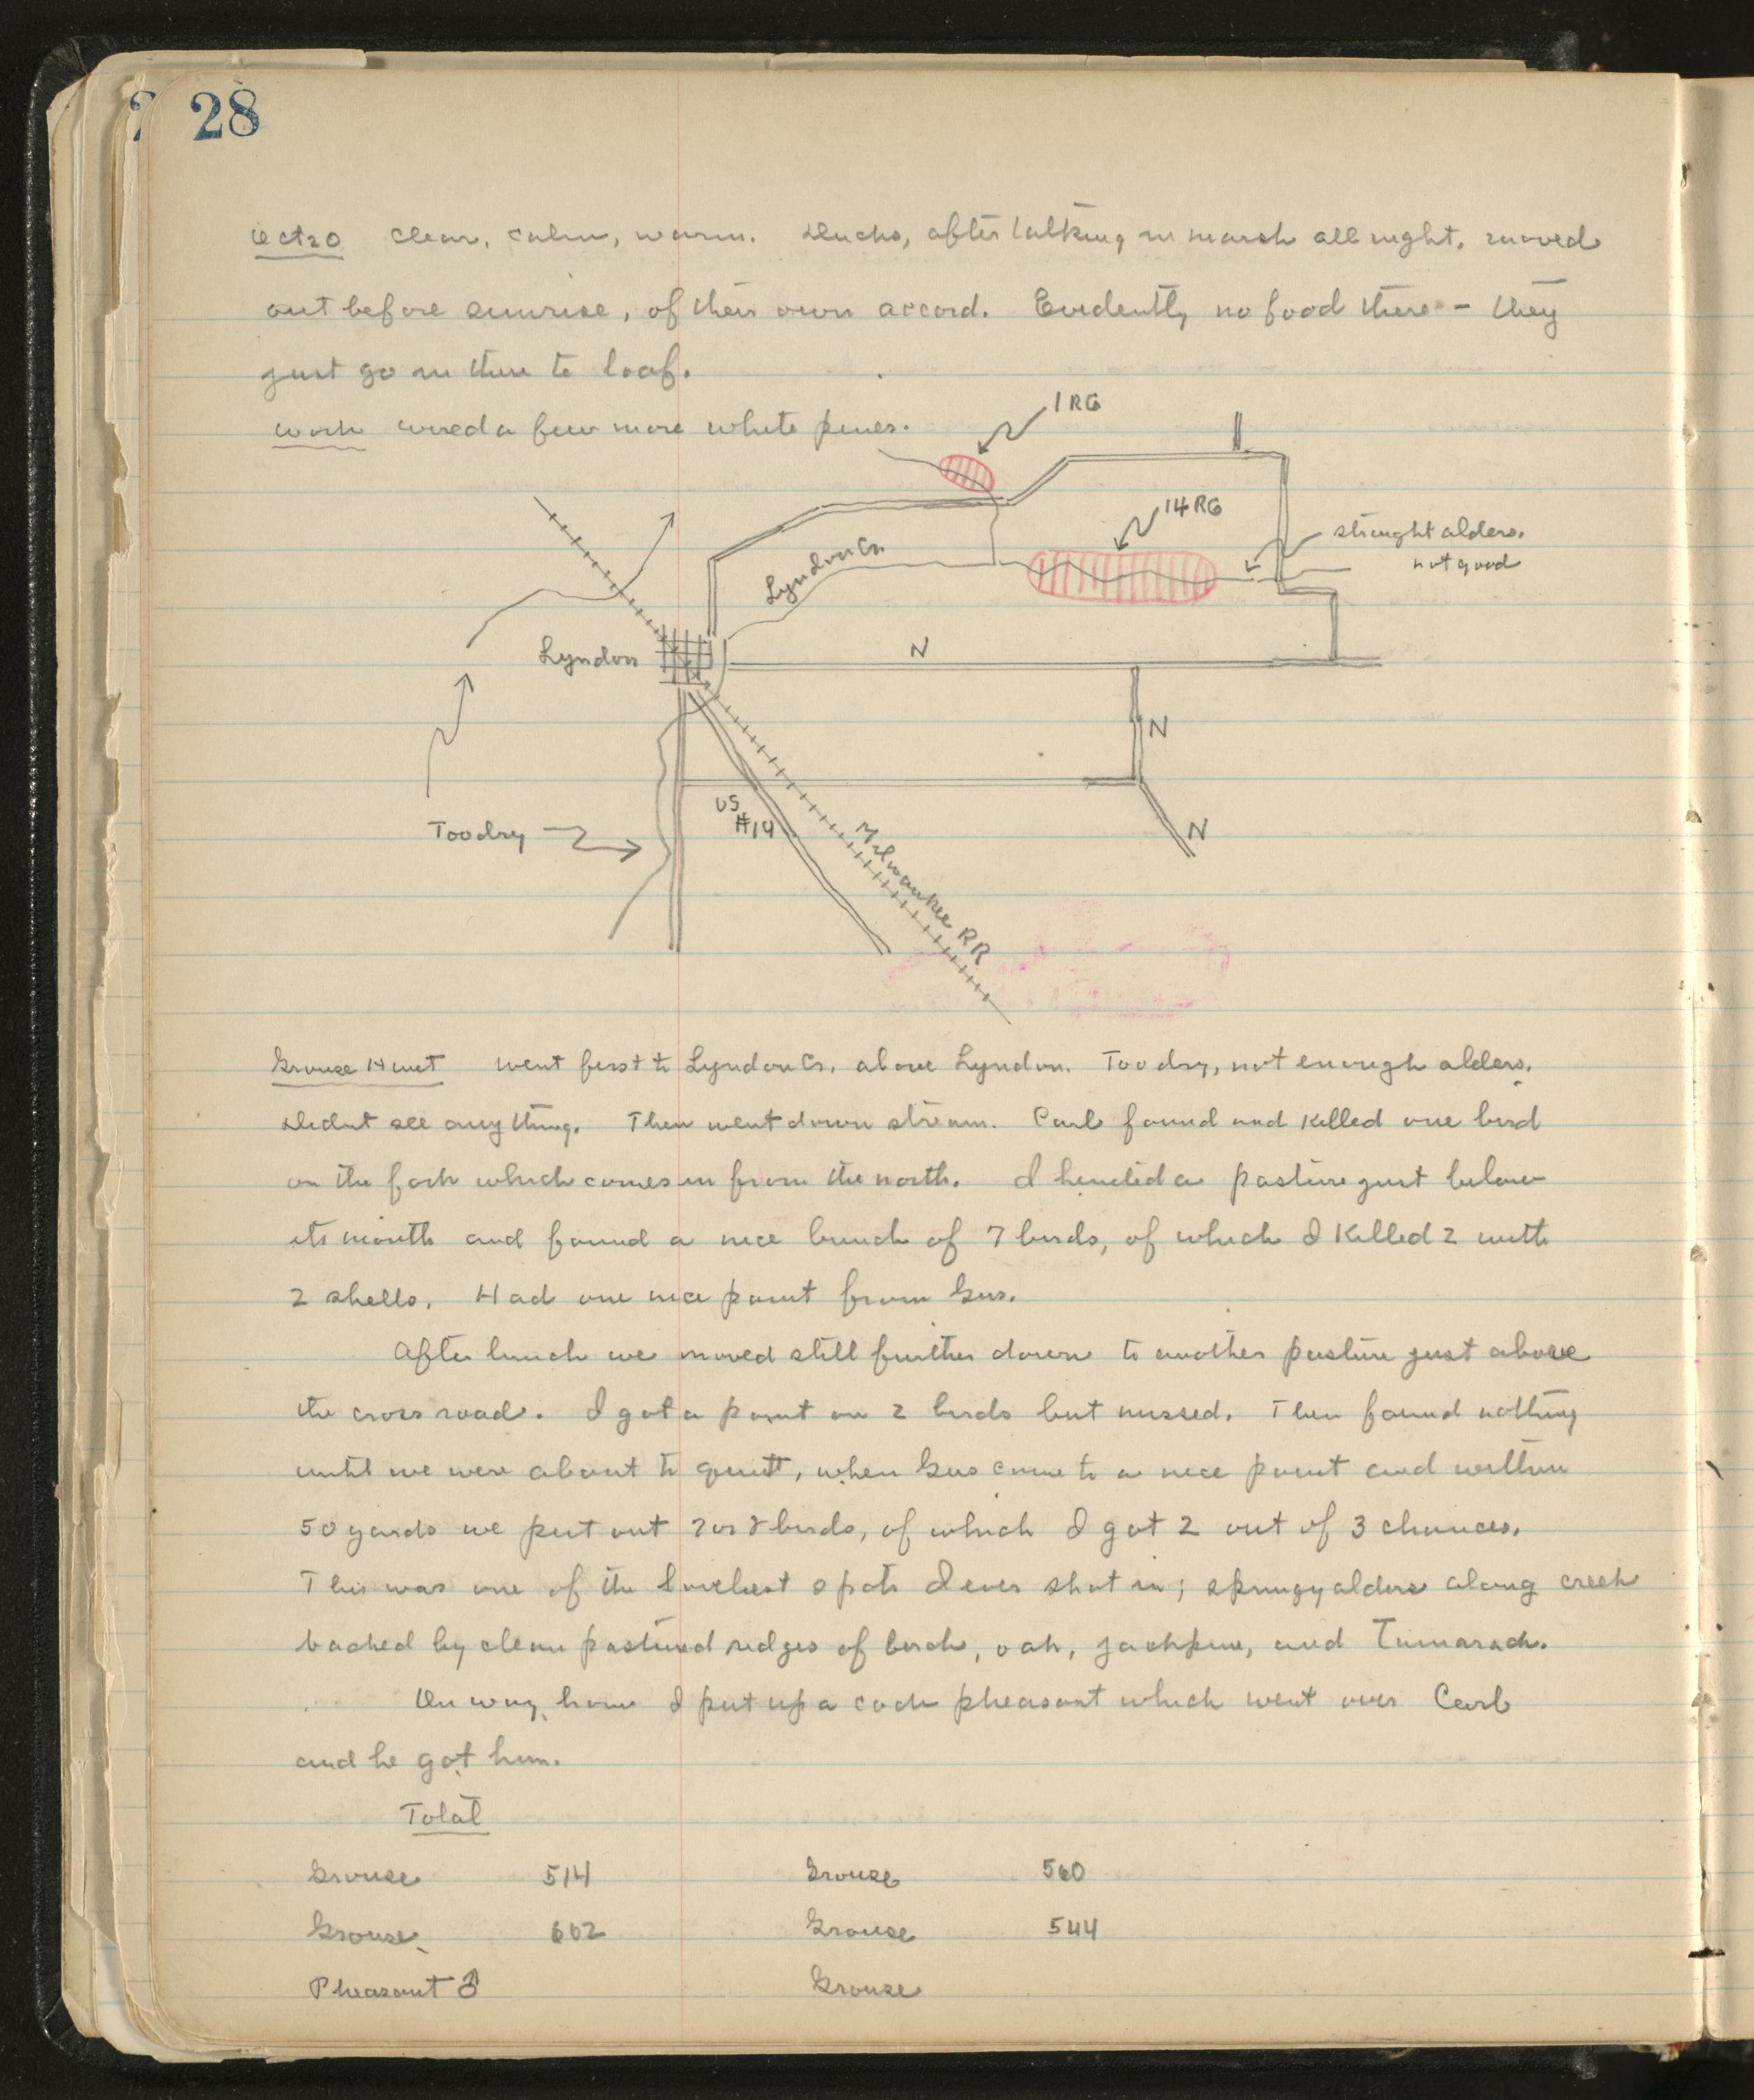 28
Oct 20 Clear, calm, warm. Ducks, after talking in marsh all night, moved
out before sunrise, of their own accord. Evidently no food there - they
just go in there to loaf.
Work wired a few more white pines.
1 RG
14 RG
straight alders.
not good
Lyndon Cr.
Lyndon
N
N
Too dry
US
#14
N
Milwaukee RR
Grouse Hunt went first to Lyndon Cr. above Lyndon. Too dry, not enough alders.
Didnt see anything. Then went down stream. Carl found and killed one bird
on the fork which comes in from the north. I hunted a pasture just below
its mouth and found a nice bunch of 7 birds, of which I killed 2 with
2 shells. Had one nice point from Gus.
After lunch we moved still further down to another pasture just above
the cross road. I got a point on 2 birds but missed. Then found nothing
until we were about to quit, when Gus came to a nice point and within
50 yards we put out 7 or 8 birds, of which I got 2 out of 3 chances.
This was one of the loveliest spots I ever shot in; springy alders along creek
backed by clean pastured ridges of birch, oak, jackpine, and Tamarack.
On way home I put up a cock pheasant which went over Carl
and he got him.
Total
Grouse 514 Grouse 560
Grouse 602 Grouse 544
Pheasant ♂ Grouse